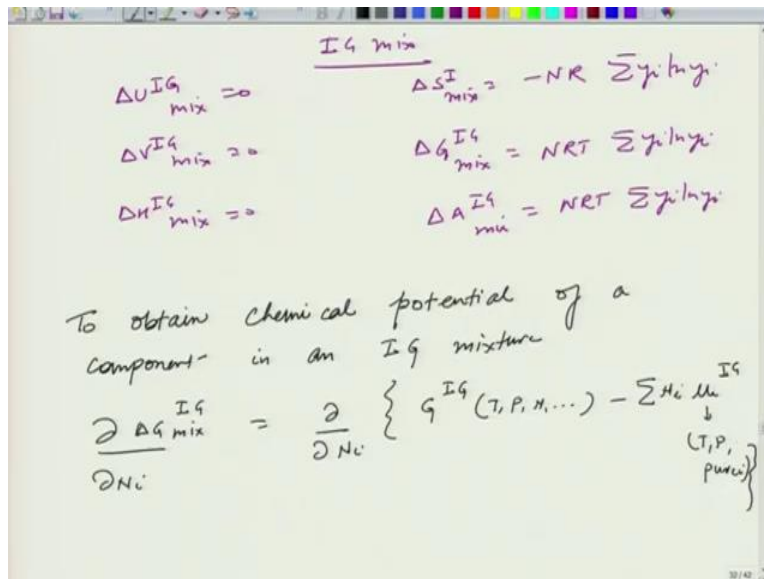 IG mix
ΔU^{IG}_{mix} = 0 ΔS^{I}_{mix} = -NR Σyi ln yi
ΔV^{IG}_{mix} = 0 ΔG^{IG}_{mix} = NRT Σyi ln yi
ΔH^{IG}_{mix} = 0 ΔA^{IG}_{mix} = NRT Σyi ln yi
To obtain chemical potential of a
component in an IG mixture
∂ΔG^{IG}_{mix}/∂Ni = ∂/∂Ni { G^{IG} (T, P, N, ...) - ΣNi μi^{IG}
↓
(T, P,
pure i) }
32/42